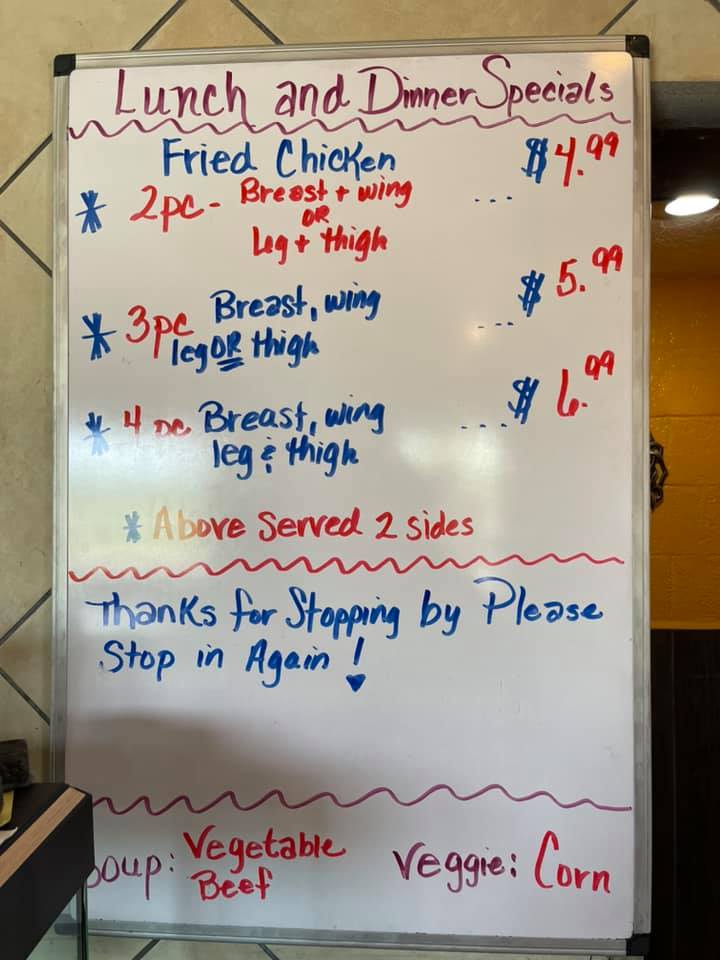 Lunch and Dinner Specials
Fried Chicken $4.99
* 2pc - Breast + wing ...
OR
Leg + thigh
* 3pc Breast, wing ... $5.99
leg OR thigh
* 4 pc Breast, wing ... $6.99
leg & thigh
* Above Served 2 sides
Thanks for Stopping by Please
Stop in Again !
Soup: Vegetable Veggie: Corn
Beef